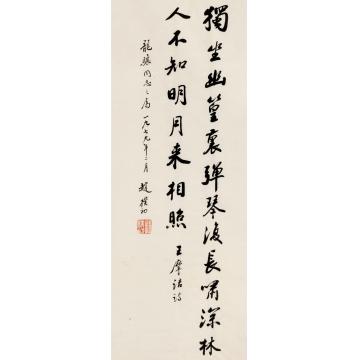 獨坐幽篁裏彈琴復長嘯深林
人不知明月来相照 王摩诘诗
龍驤同志之屬 一九七九年二月 趙樸初